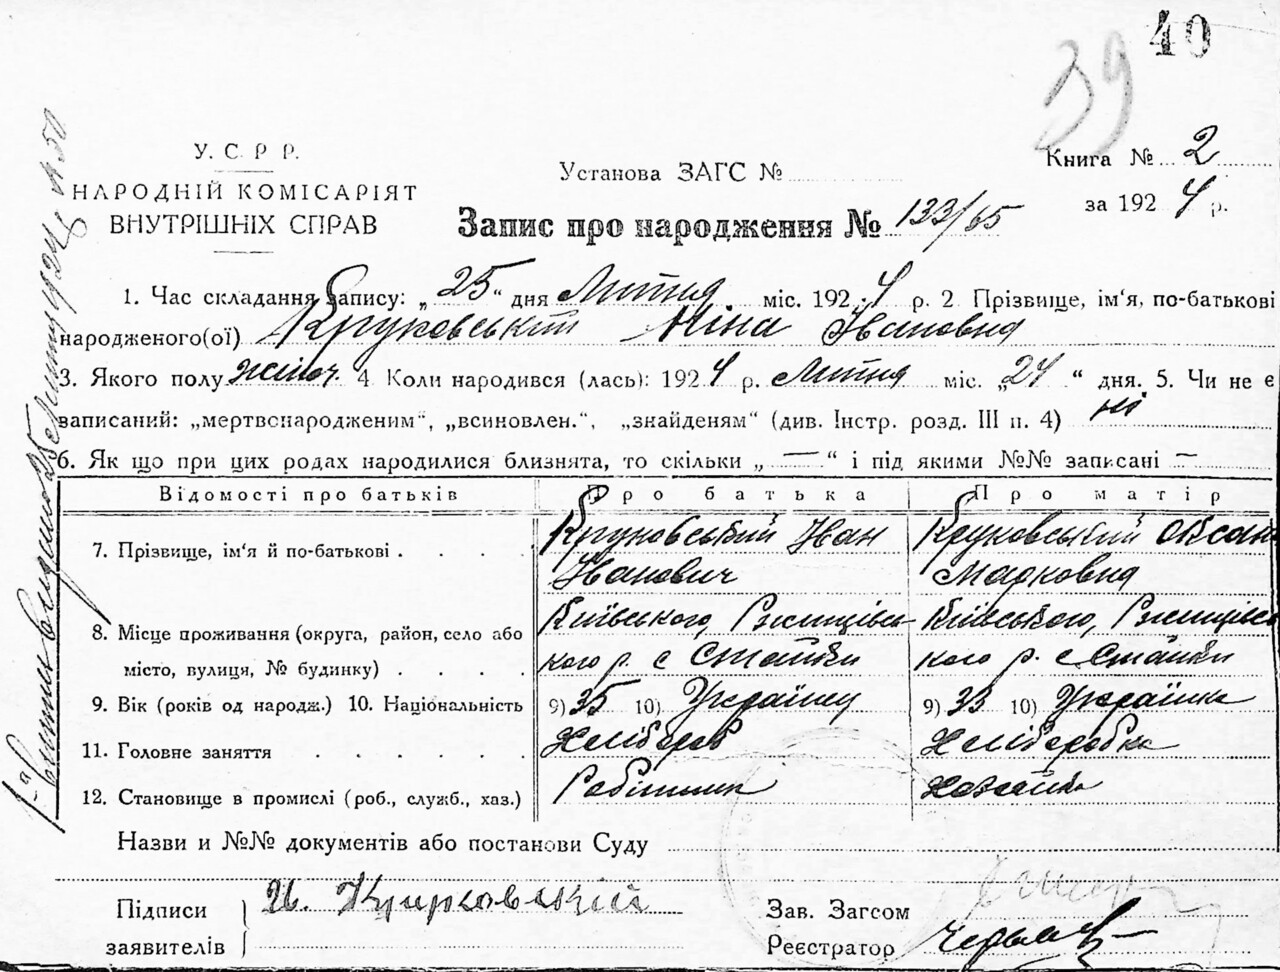 40
39
У. С. Р Р.
НАРОДНІЙ КОМІСАРІЯТ
ВНУТРІШНІХ СПРАВ
Установа ЗАГС №
Книга № 2
за 1924 р.
Запис про народження № 133/65
1. Час складання запису: „25“ дня Лютня міс. 1924 р. 2 Прізвище, ім'я, по-батькові
народженого(ої) Круковський Ніна Івановна
3. Якого полу жіноч. 4 Коли народився (лась): 1924 р. Лютня міс. „24“ дня. 5. Чи не є
записаний: „мертвонародженим“, „всиновлен.“, „знайденям“ (див. Інстр. розд. III п. 4) ні
6. Як що при цих родах народилися близнята, то скільки „ — “ і під якими №№ записані —
Відомості про батьків Про батька Про матір
7. Прізвище, ім'я й по-батькові . . . . Круковський Іван Круковський Оксана
Іванович Марковна
8. Місце проживання (округа, район, село або Київського, Ржищівсь- Київського, Ржищівсь
місто, вулиця, № будинку) . . . . кого р. с Стайки кого р. с Стайки
9. Вік (років од народж.) 10. Національність 9) 35 10) Українец 9) 33 10) Українка
11. Головне заняття . . . . . . Хлібороб Хліборобка
12. Становище в промислі (роб., служб., хаз.) Робітник Хозяйка
Назви и №№ документів або постанови Суду
Підписи И. Круковский
заявителів
Зав. Загсом
Реєстратор